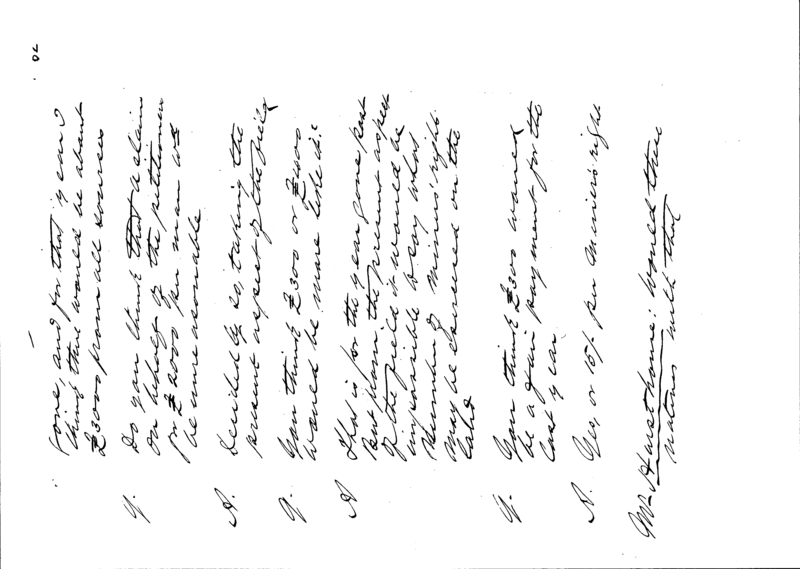 gone, and for that year I
think there would be about
£3000 from all sources
Q. Do you think that a claim
on behalf of the petitioner
for £2000 per man wd
be unreasonable
A. Decidedly so, taking the
present aspect of the field
Q. You think £300 or £400
would be more like it
A That is for the year gone past
but from the present aspect
of the field it would be
impossible to say what
number of miners' right
may be renewed on the
field
Q. You think £300 would
be a fair payment for the
last year
A. Yes, or 15/- per miner's right
Mr Hursthouse: Would the
natives with that